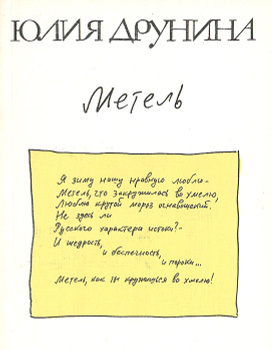 ЮЛИЯ ДРУНИНА
Метель
Я зиму нашу нравную люблю –
Метель, что закружилась во хмелю,
Люблю крутой мороз огневощёкий.
Не здесь ли
Русского характера истоки? –
И щедрость,
и беспечность,
и пороки...
Метель, как ты кружишься во хмелю!